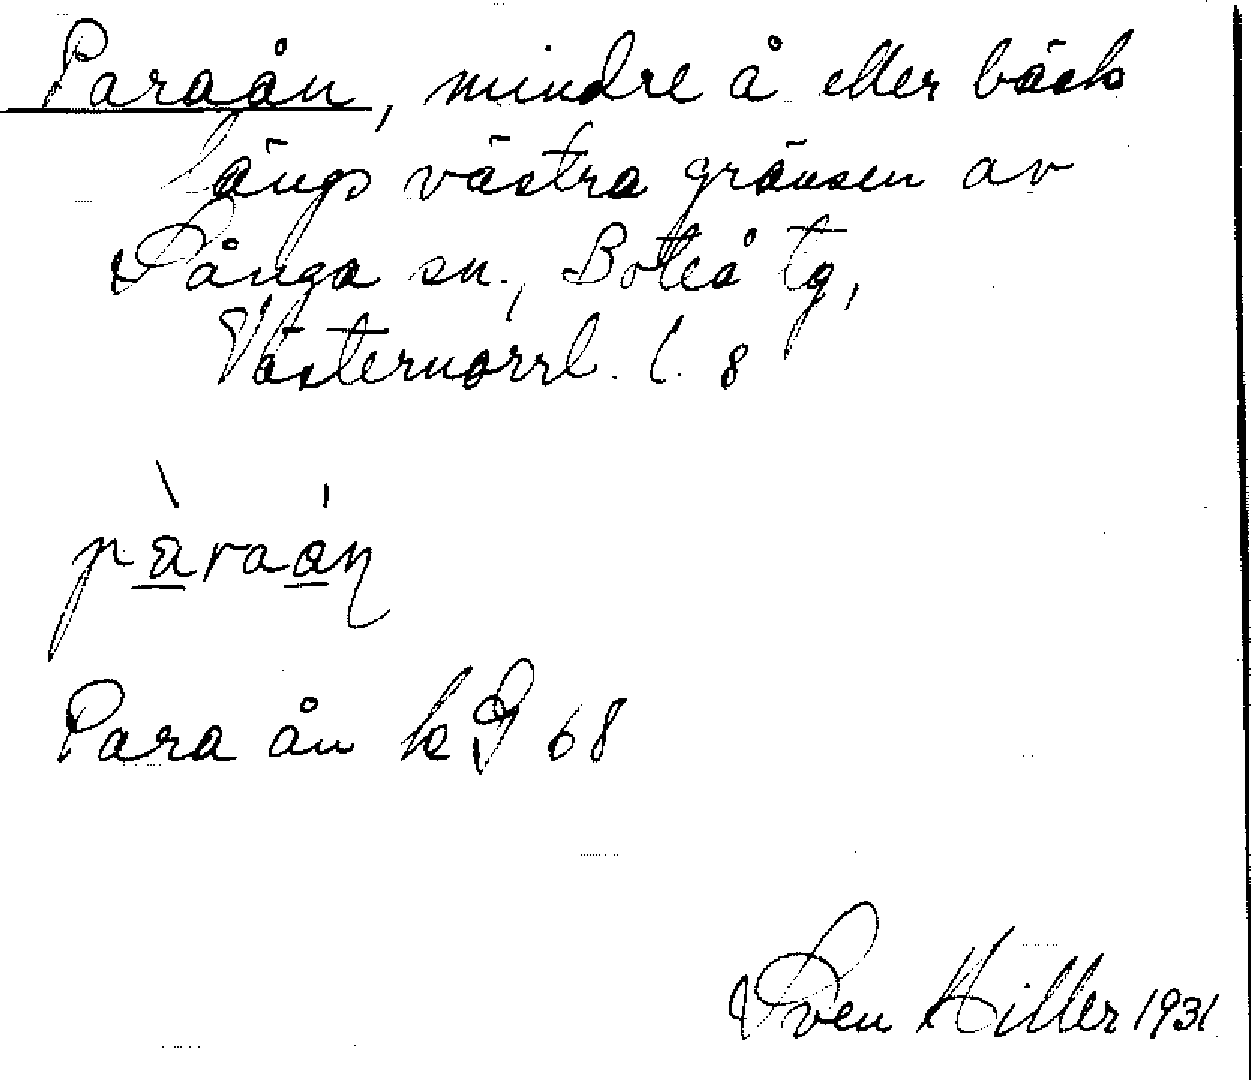 Paraån, mindre å eller bäck
längs västra gränsen av
Sånga sn., Boteå tg,
Västernorrl. l. 8
pàraán
Para ån kG 68
Sven Hiller 1931